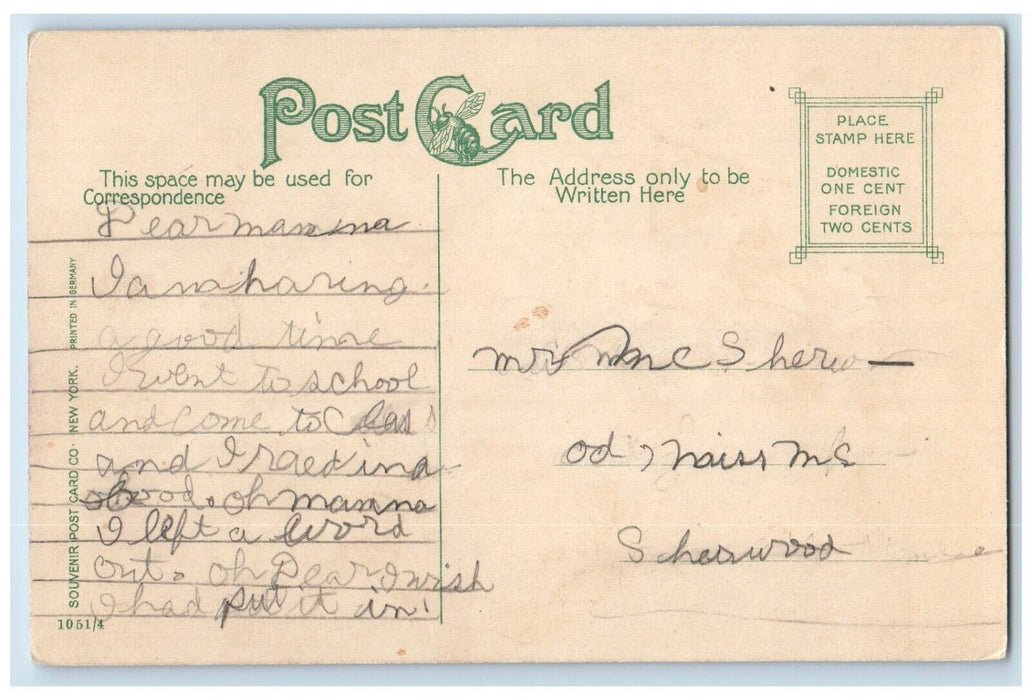 Post Card
This space may be used for
Correspondence
The Address only to be
Written Here
PLACE
STAMP HERE
DOMESTIC
ONE CENT
FOREIGN
TWO CENTS
Dear mamma
I am having
a good time
I went to school
and come to Class
and I raed in a
book. oh mamma
I left a word
out. oh Dear I wish
I had put it in!
mrs Mc Sherwo—
od, miss Mc
Sherwood
SOUVENIR POST CARD CO. NEW YORK. PRINTED IN GERMANY
1051/4